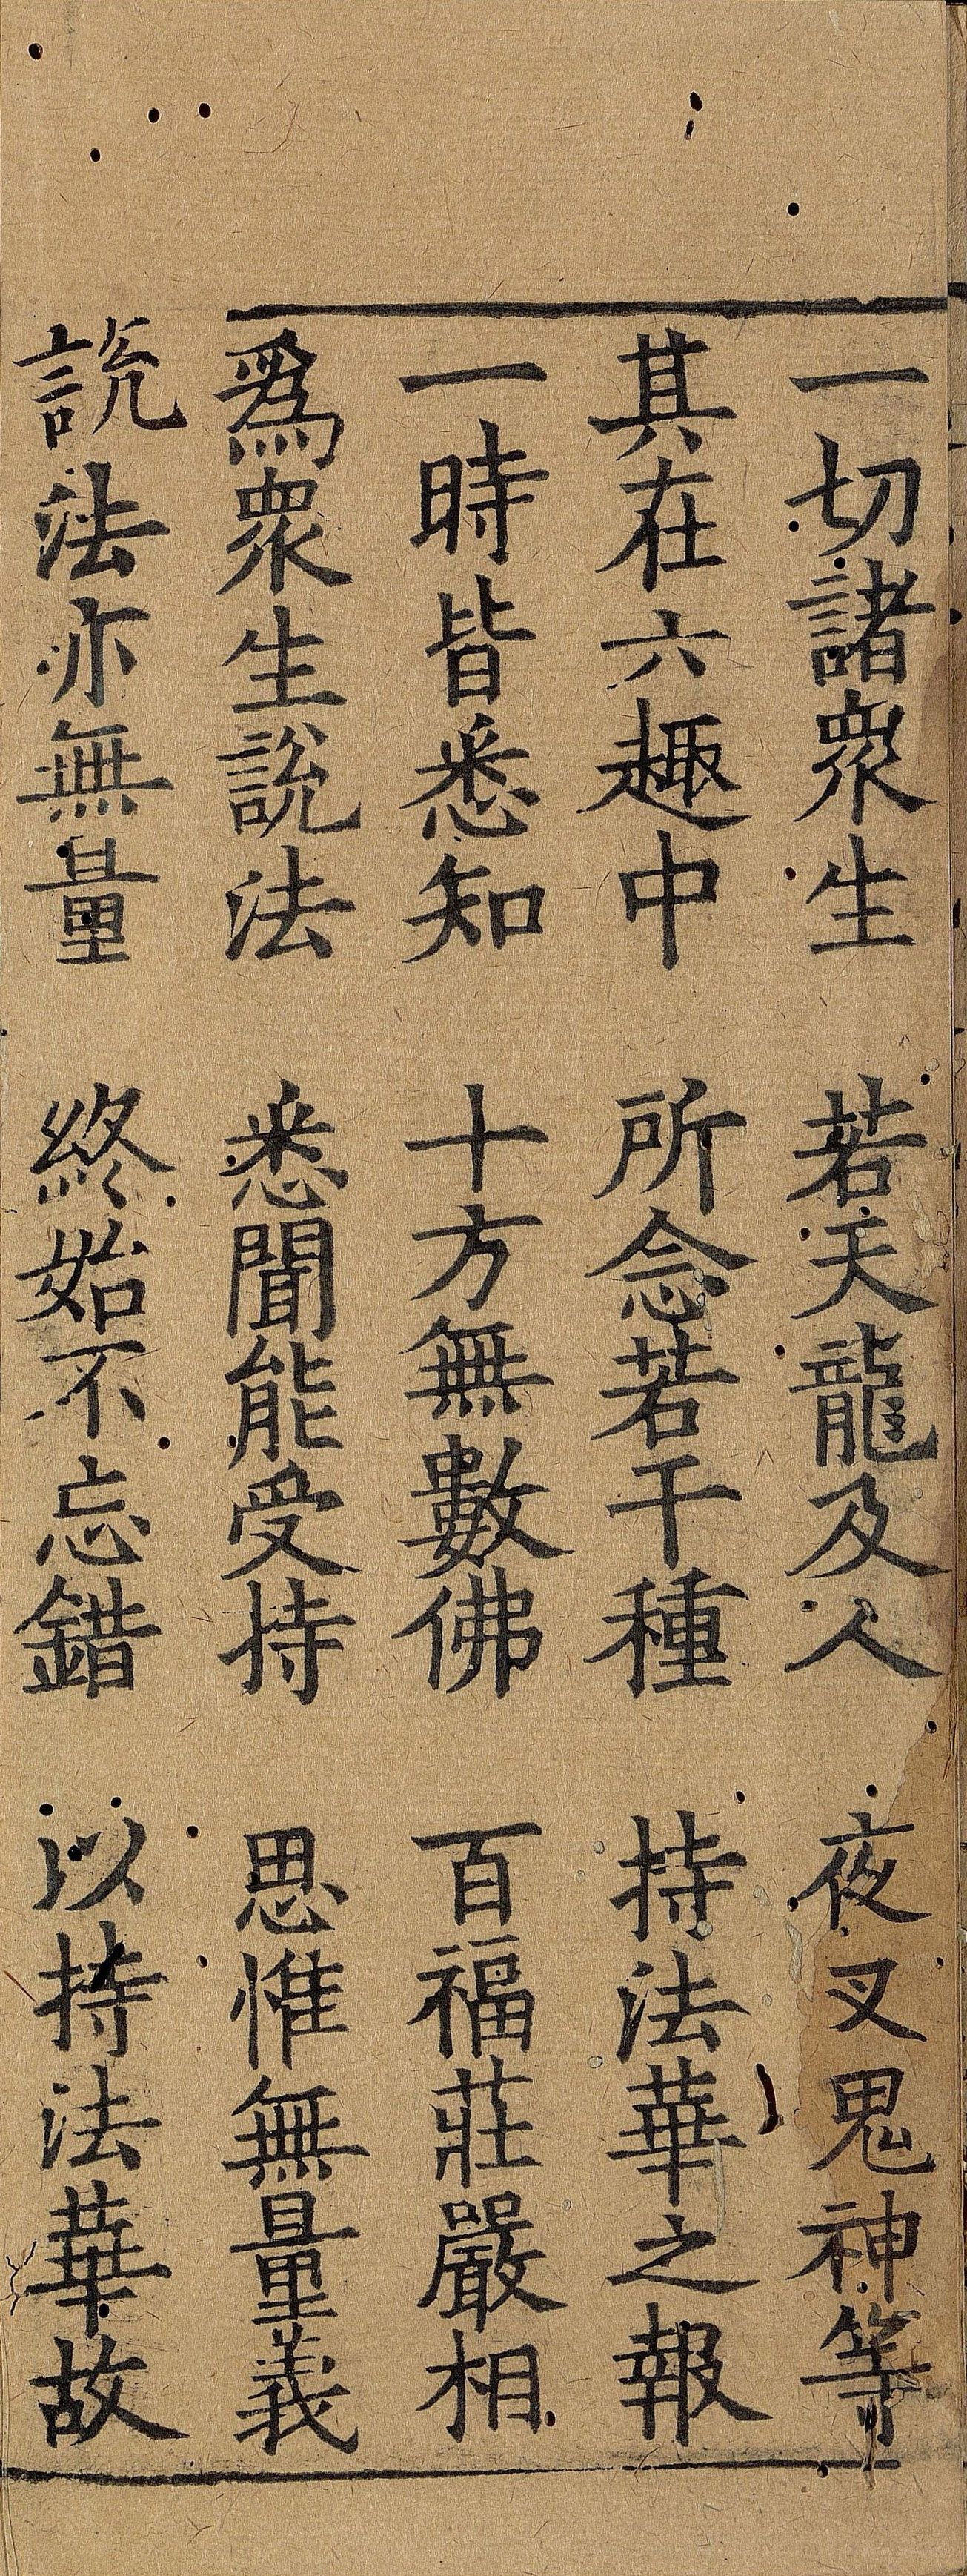 一切諸衆生　若天龍及人　夜叉鬼神等
其在六趣中　所念若干種　持法華之報
一時皆悉知　十方無數佛　百福莊嚴相
爲衆生說法　悉聞能受持　思惟無量義
說法亦無量　終始不忘錯　以持法華故